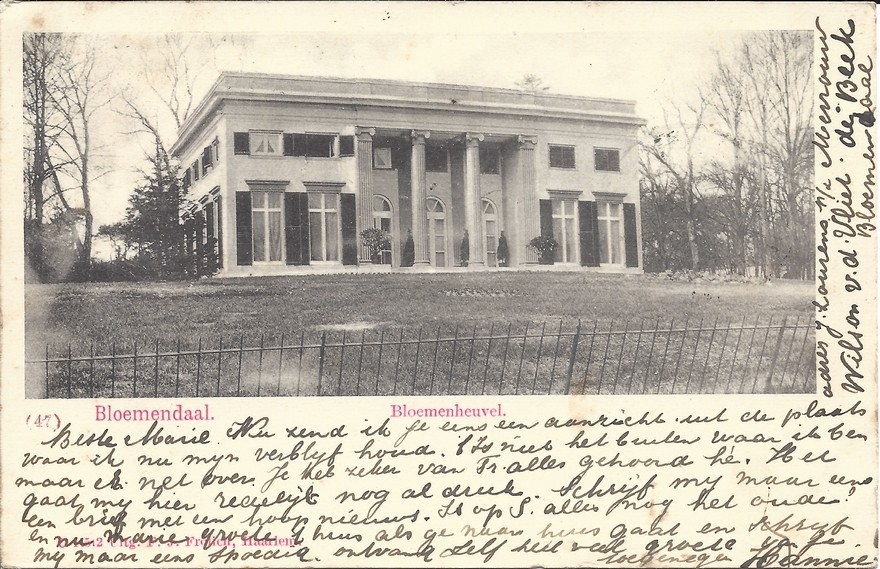 (47) Bloemendaal. Bloemenheuvel.
Beste Marie. Nu zend ik je eens een aanzicht uit de plaats
waar ik nu myn verblyf houd. Is niet het buiten waar ik ben
maar er net over. Je hebt zeker van Fr. alles gehoord hè. Het
gaat my hier redelyk nog al druk. Schryf my maar eens
een brief met een hoop nieuws. Is op S. alles nog het oude!
en nu Marie groet t huis als ge naar huis gaat en schryf
my maar eens spoedig. ontvang zelf het veel groete v. je
toegenegen Hannie.
No 2 Uitg. P. J. Frölich, Haarlem.
adres y. Lourens p/a Mevrouw
Wilson v.d. Vliet. dej Beek
Bloemendaal